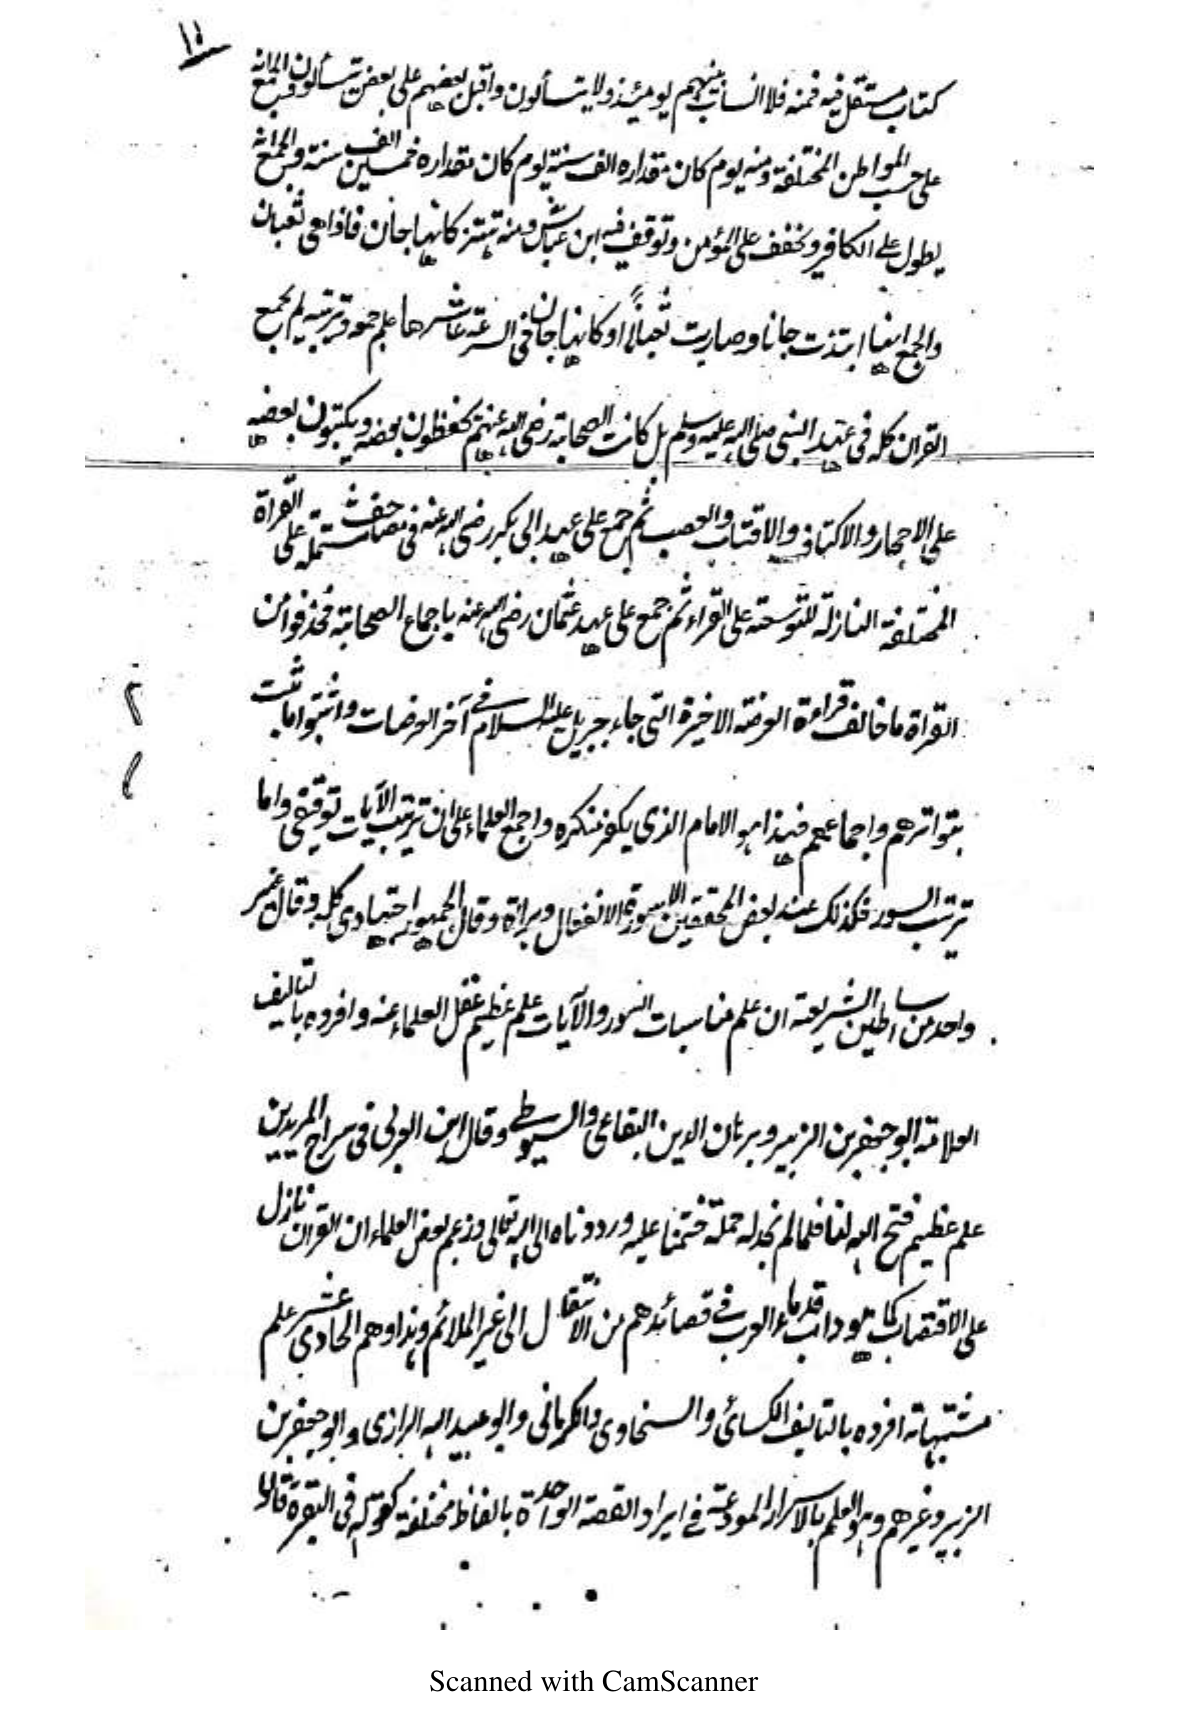 ١١
كتاب مستقل فيه فمنه فلا انساب بينهم يومئذ ولا يتسألون واقبل بعضهم على بعض يتسألون والجمع انه
على حسب المواطن المختلفة ومنه يوم كان مقداره الف سنة يوم كان مقداره خمسين الف سنة والجمع انه
يطول على الكافر ويخفف على المؤمن وتوقف فيه ابن عباس ومنه تهتز كانها جان فاذا هى ثعبان
والجمع انها ابتدت جانا وصارت ثعبانًا او كانها جان فى السرعة عاشرها علم جمعه وترتيبه لم يجمع
القران كله فى عهد النبى صلى الله عليه وسلم بل كانت الصحابة رضى الله عنهم يحفظون بعضه ويكتبون بعضه
على الاحجار والاكتاف والاقتاب والعصب ثم جمع على عهد ابى بكر رضى الله عنه فى مصاحف مشتملة على القراة
المختلفة النازلة للتوسعة على القراء ثم جمع على عهد عثمان رضى الله عنه باجماع الصحابة فحذفوا من
القراة ما خالف قراءة العرضة الاخيرة التى جاء جبريل عليه السلام فى آخر العرضات واثبتوا ما ثبت
بتواترهم واجماعهم فهذا هو الامام الذى يكفر منكره واجمع العلماء على ان ترتيب الآيات توقيفى واما
ترتيب السور فكذلك عند بعض المحققين الا سورة الانفال وبراة وقال الجمهور اجتهادى كله وقال غير
واحد من اساطين الشريعة ان علم مناسبات السور والآيات علم عظيم غفل العلماء عنه وافرده بالتاليف
العلامة ابو جعفر بن الزبير وبرهان الدين البقاعى والسيوطى وقال ابن العربى فى سراج المريدين
علم عظيم فتح الله لنا فلما لم نجد له حملة ختمنا عليه ورددناه الى الله تعالى وزعم بعض العلماء ان القران نازل
على الاقتضاب كما هو داب قدماء العرب فى قصائدهم من الانتقال الى غير الملائم وهذا وهم الحادى عشر علم
مشتبهاته افرده بالتاليف الكسائى والسخاوى والكرمانى وابو عبد الله الرازى وابو جعفر بن
الزبير وغيرهم وهو العلم بالاسرار المودعة فى ايراد القصة الواحدة بالفاظ مختلفة كقوله فى البقرة قالا
Scanned with CamScanner